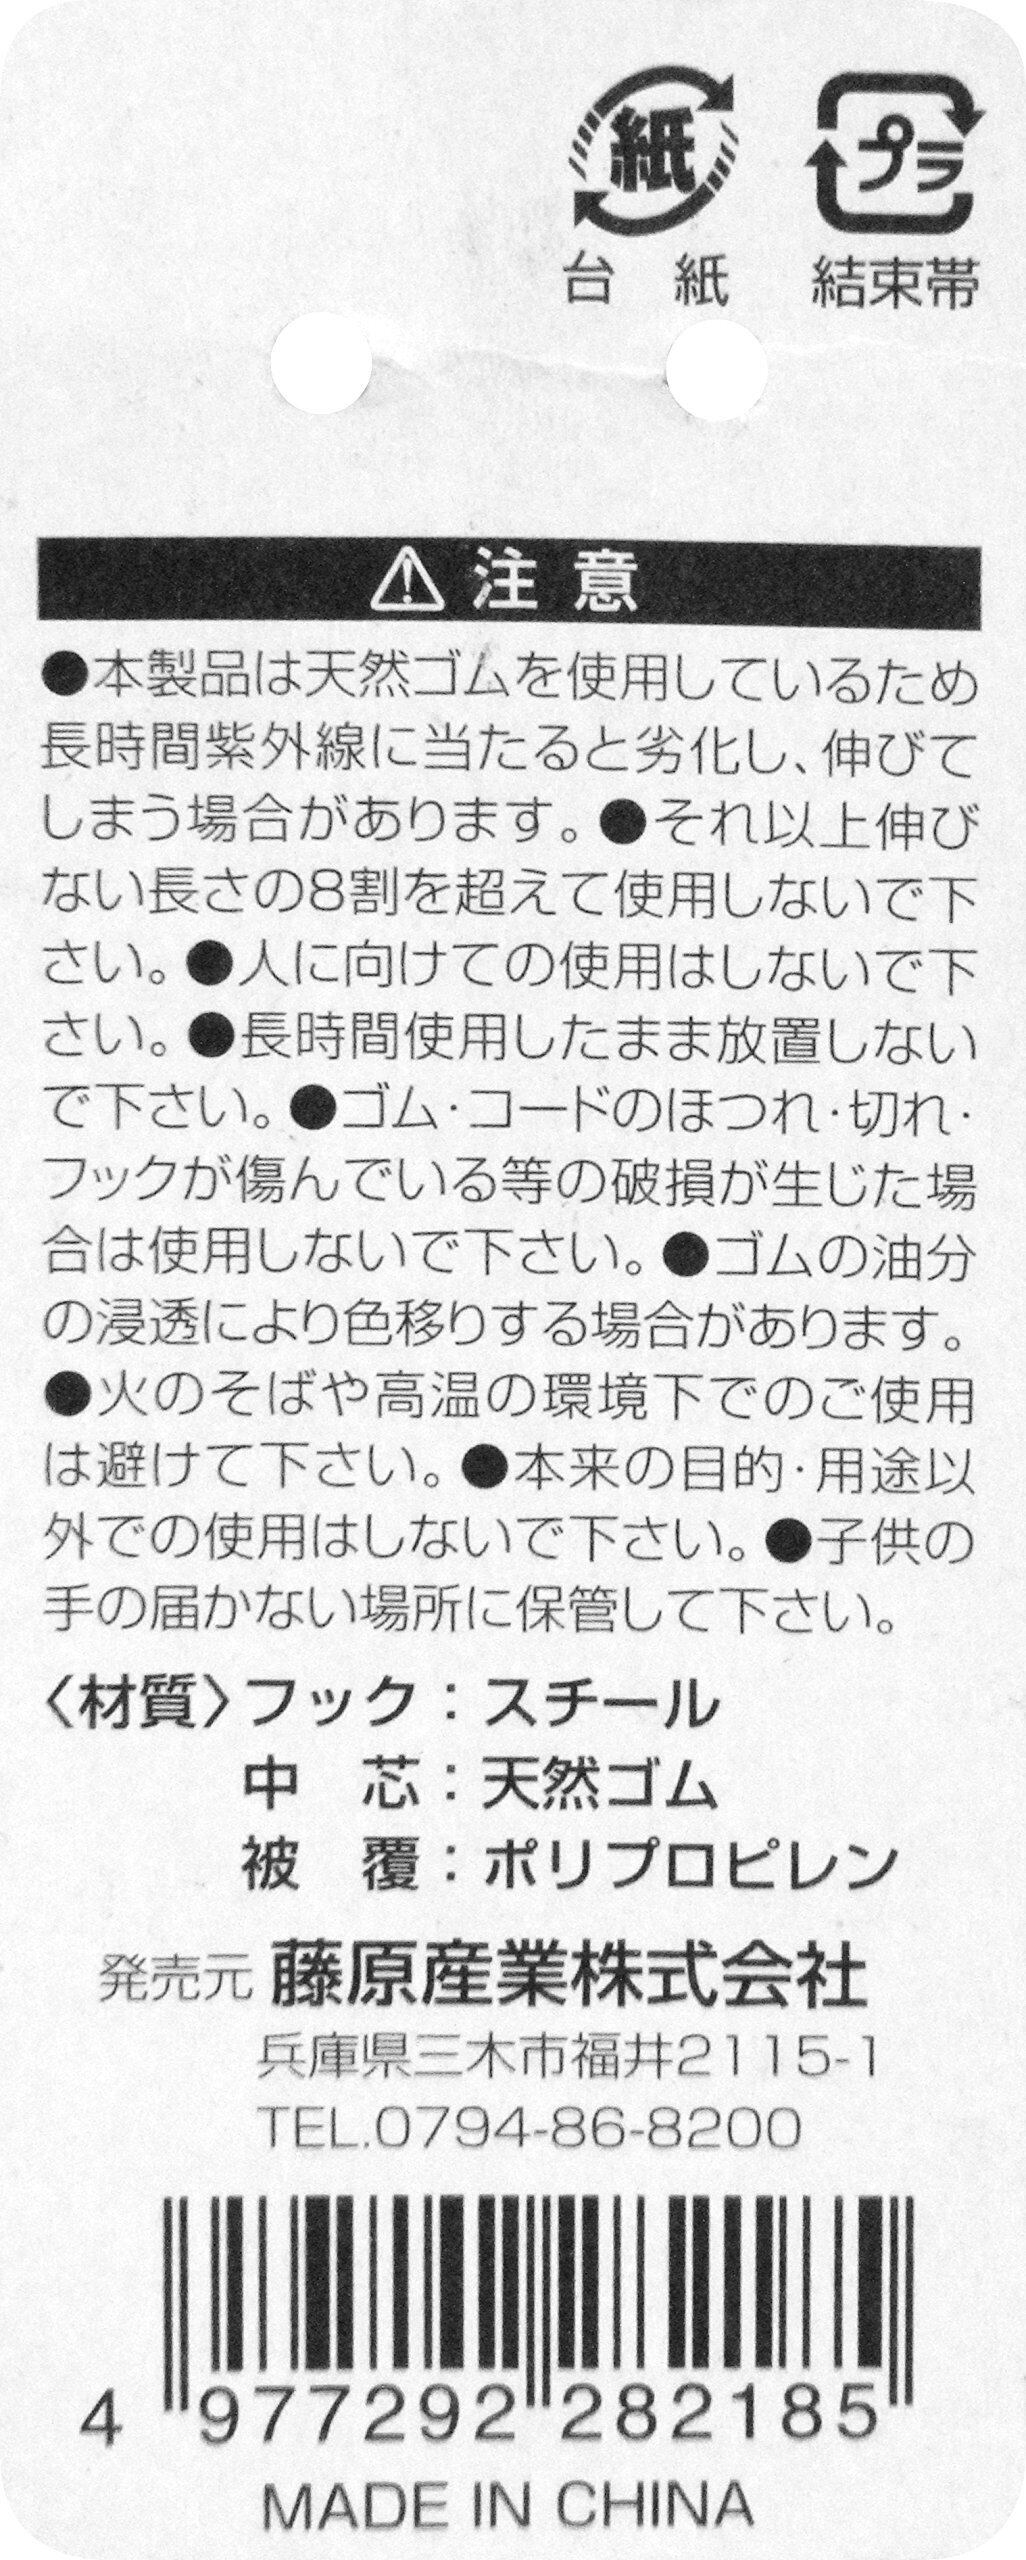 紙 プラ
台紙 結束帯
注意
●本製品は天然ゴムを使用しているため
長時間紫外線に当たると劣化し、伸びて
しまう場合があります。●それ以上伸び
ない長さの8割を超えて使用しないで下
さい。●人に向けての使用はしないで下
さい。●長時間使用したまま放置しない
で下さい。●ゴム・コードのほつれ・切れ・
フックが傷んでいる等の破損が生じた場
合は使用しないで下さい。●ゴムの油分
の浸透により色移りする場合があります。
●火のそばや高温の環境下でのご使用
は避けて下さい。●本来の目的・用途以
外での使用はしないで下さい。●子供の
手の届かない場所に保管して下さい。
〈材質〉フック:スチール
中芯:天然ゴム
被覆:ポリプロピレン
発売元 藤原産業株式会社
兵庫県三木市福井2115-1
TEL.0794-86-8200
4 977292 282185
MADE IN CHINA